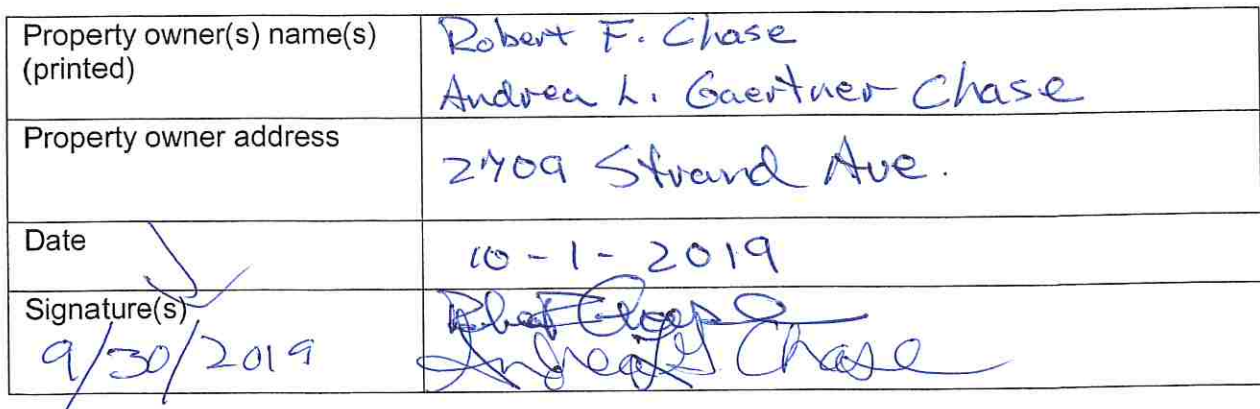 Property owner(s) name(s)
(printed)
Robert F. Chase
Andrea L. Gaertner Chase
Property owner address
2709 Strand Ave.
Date
10-1-2019
Signature(s)
9/30/2019
Robert F Chase
Andrea G. Chase